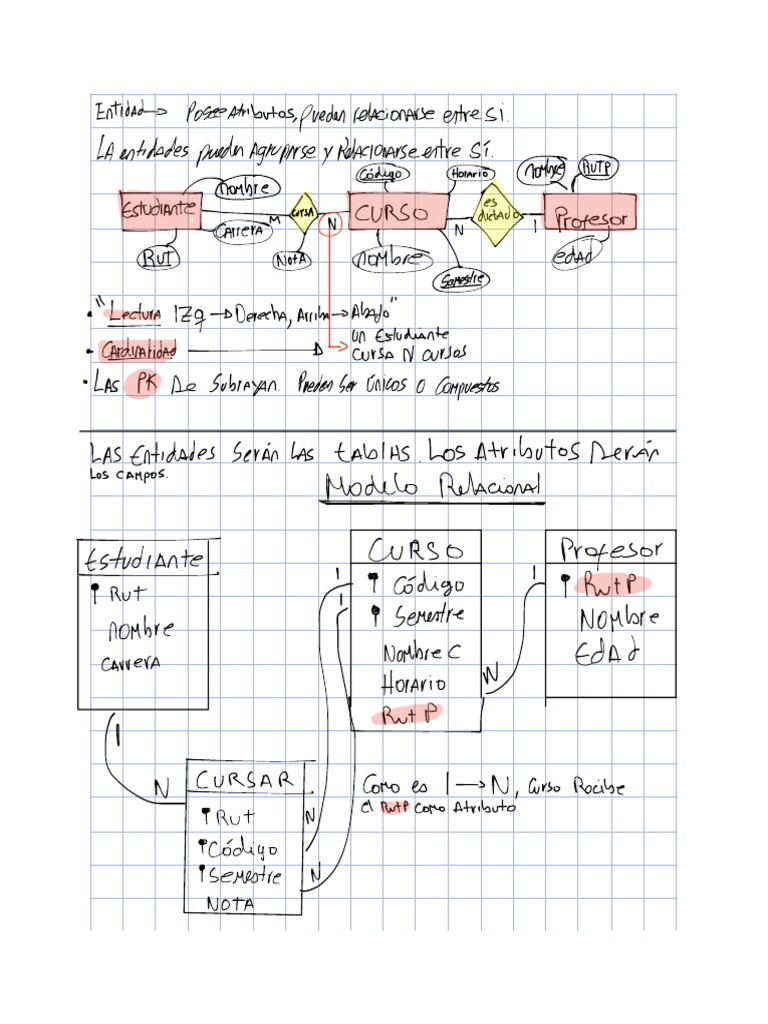 Entidad → Posee Atributos, pueden relacionarse entre si.
LA entidades pueden Agruparse y Relacionarse entre Sí.
Estudiante
nombre
Carrera
Rut
M
cursa
Nota
N
CURSO
Código
Horario
nombre
Semestre
N
es dictado
1
Profesor
nombre
RUTP
edad
• "Lectura Izq → Derecha, Arriba → Abajo"
• Cardinalidad → un Estudiante
cursa N cursos
• Las PK De Subrayan. Pueden Ser Únicos o Compuestos
LAS Entidades Serán Las tablas. Los Atributos Derán
Los campos.
Modelo Relacional
Estudiante
Rut
nombre
carrera
CURSO
Código
Semestre
Nombre C
Horario
Rut P
Profesor
Rut P
Nombre
Edad
1
1
1
N
1
N
CURSAR
Rut
Código
Semestre
NOTA
N
N
Como es 1 → N, Curso Recibe
el RutP como Atributo